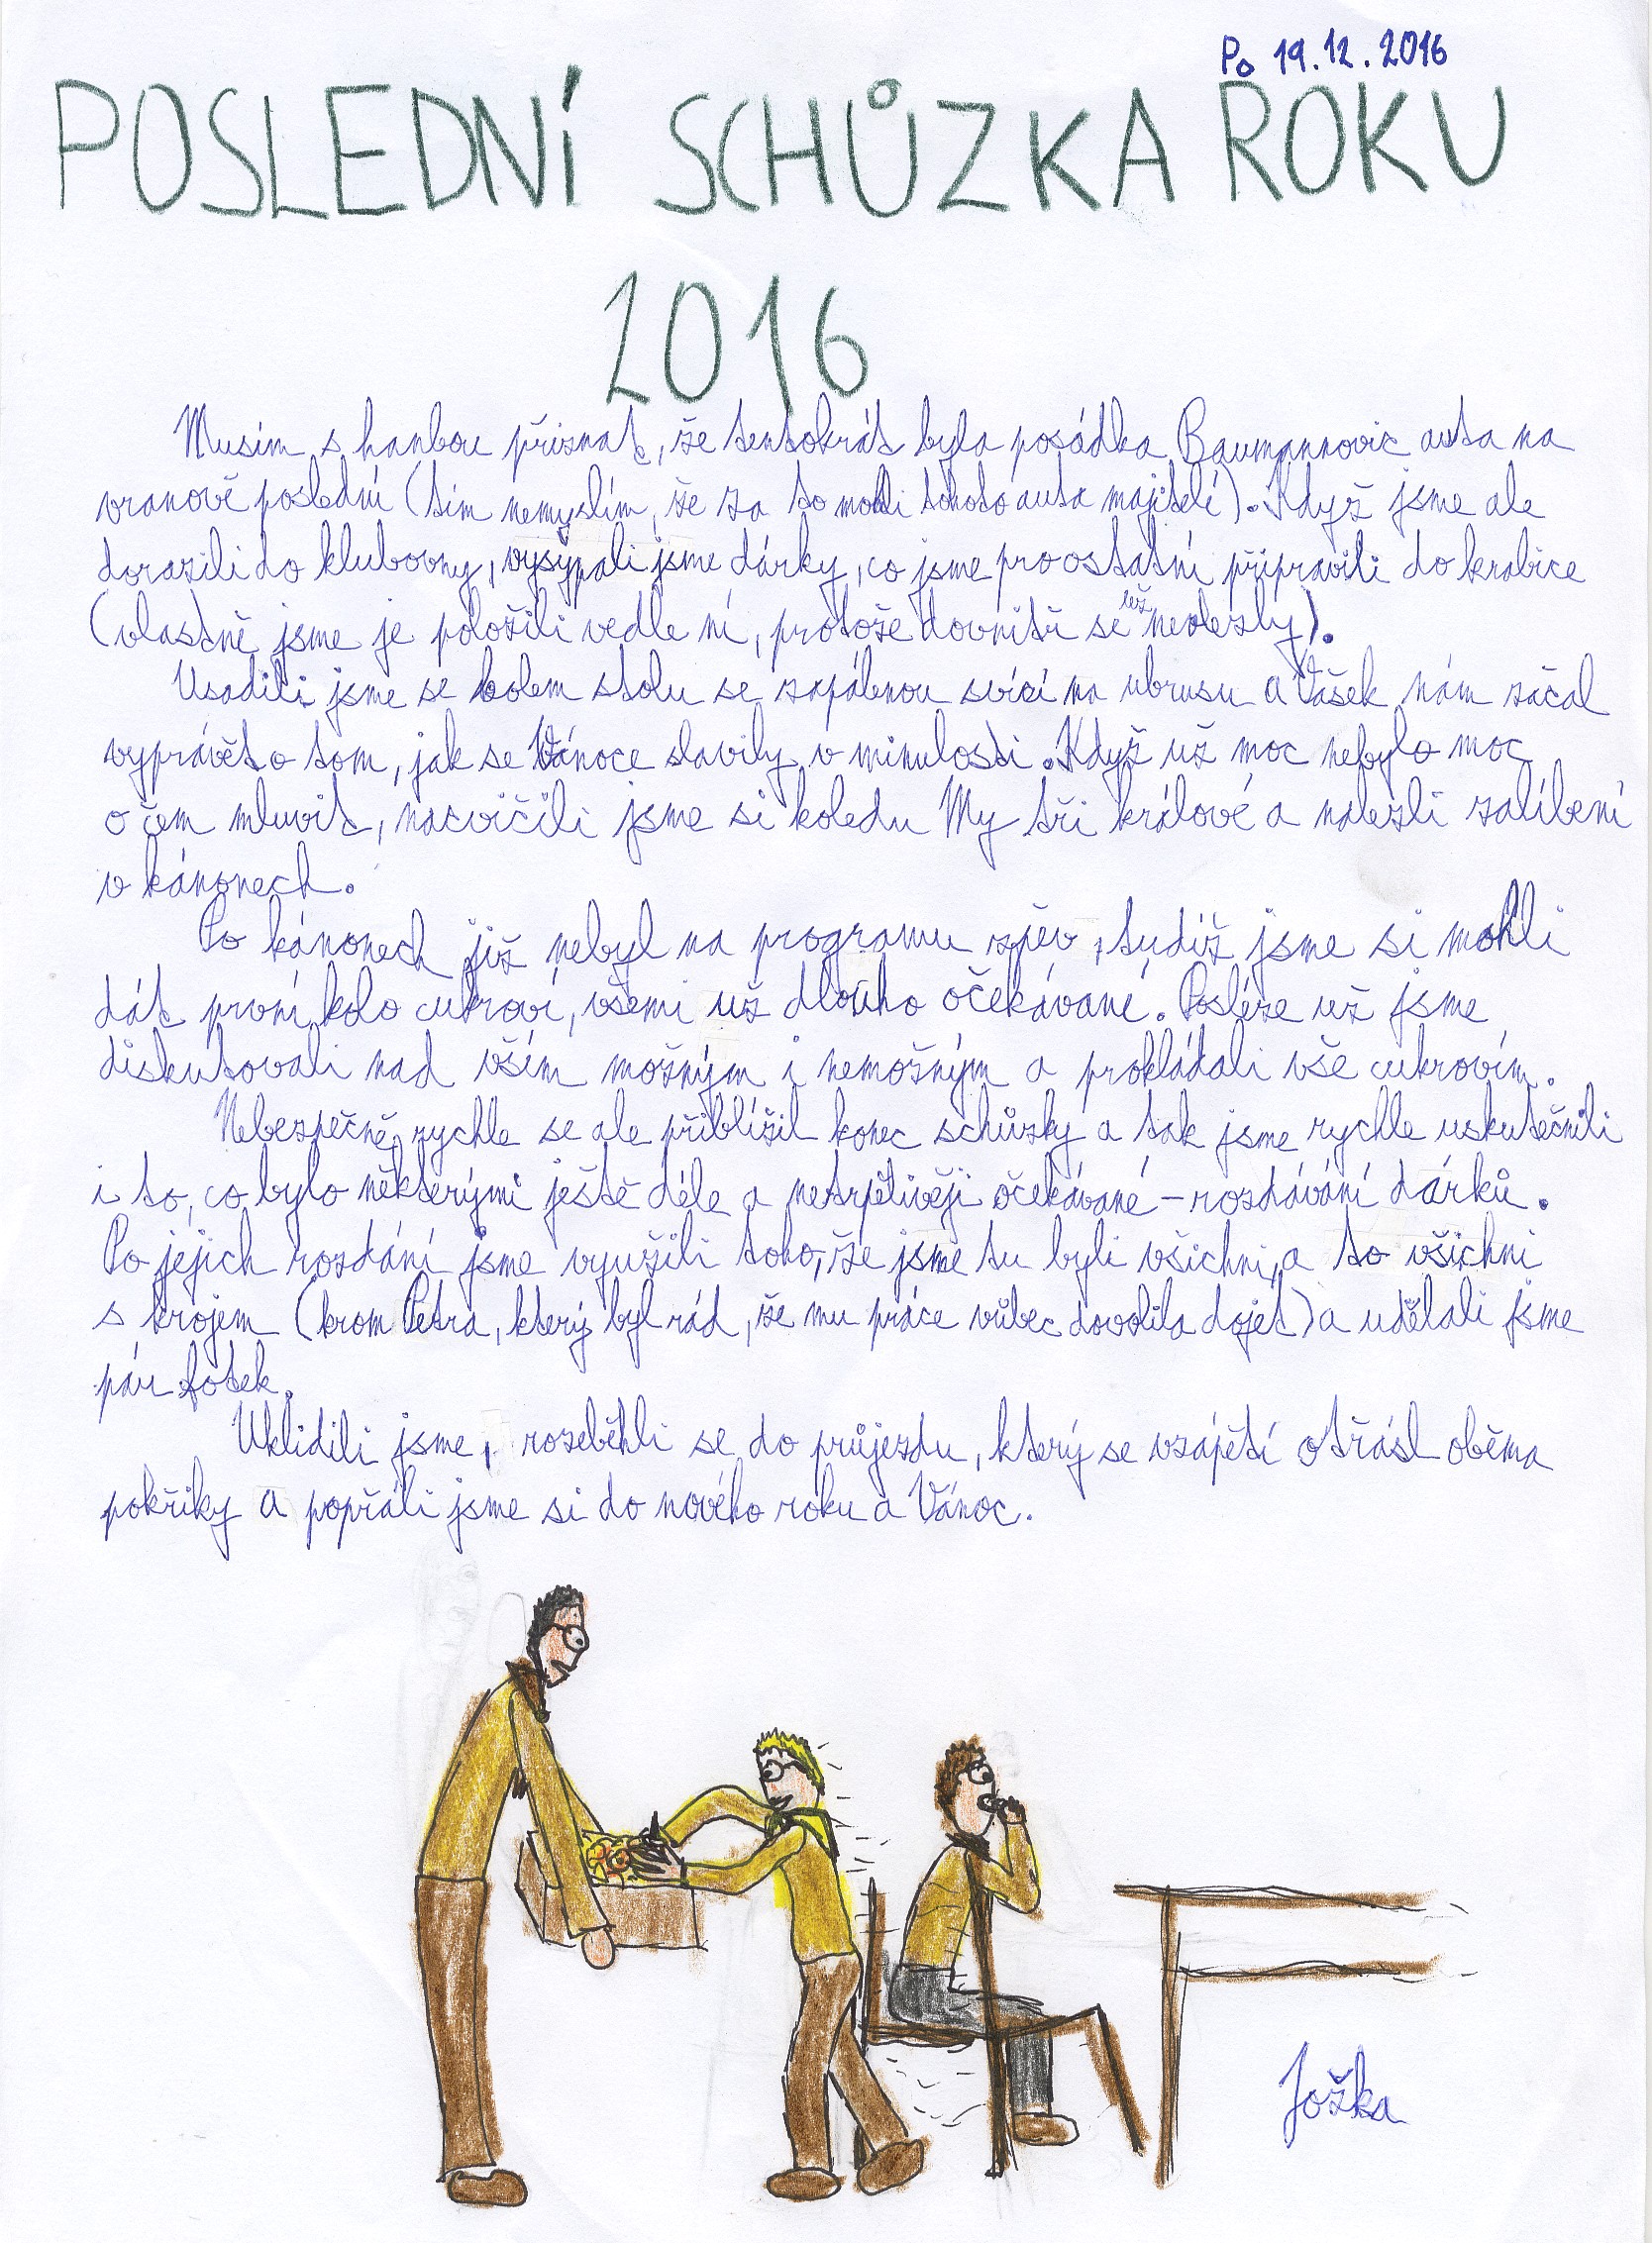 Po 19.12.2016
POSLEDNÍ SCHŮZKA ROKU
2016
Musím s hanbou přiznat, že tentokrát byla posádka Baumannovic auta na
vranově poslední (tím nemyslím, že za to mohli tohoto auta majitelé). Když jsme ale
dorazili do klubovny, vysypali jsme dárky, co jsme pro ostatní připravili do krabice
(vlastně jsme je položili vedle ní, protože dovnitř se už nevlezly).
Usadili jsme se kolem stolu se zapálenou svící na ubrusu a Vašek nám začal
vyprávět o tom, jak se Vánoce slavily v minulosti. Když už moc nebylo moc
o čem mluvit, nacvičili jsme si koledu My tři králové a nalezli zalíbení
v kánonech.
Po kánonech již nebyl na programu zpěv, tudíž jsme si mohli
dát první kolo cukroví, všemi už dlouho očekávané. Posléze už jsme
diskutovali nad vším možným i nemožným a prokládali vše cukrovím.
Nebezpečně rychle se ale přiblížil konec schůzky a tak jsme rychle uskutečnili
i to, co bylo některými ještě déle a netrpělivěji očekávané - rozdávání dárků.
Po jejich rozdání jsme využili toho, že jsme tu byli všichni, a to všichni
s krojem (krom Petra, který byl rád, že mu práce vůbec dovolila dojet) a udělali jsme
pár fotek.
Uklidili jsme, rozeběhli se do průjezdu, který se vzápětí otřásl oběma
pokřiky a popřáli jsme si do nového roku a Vánoc.
Jožka